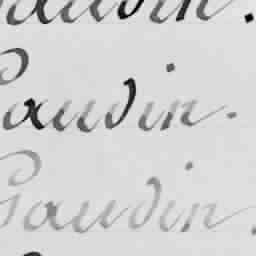 Gaudin.
Gaudin.
Gaudin.